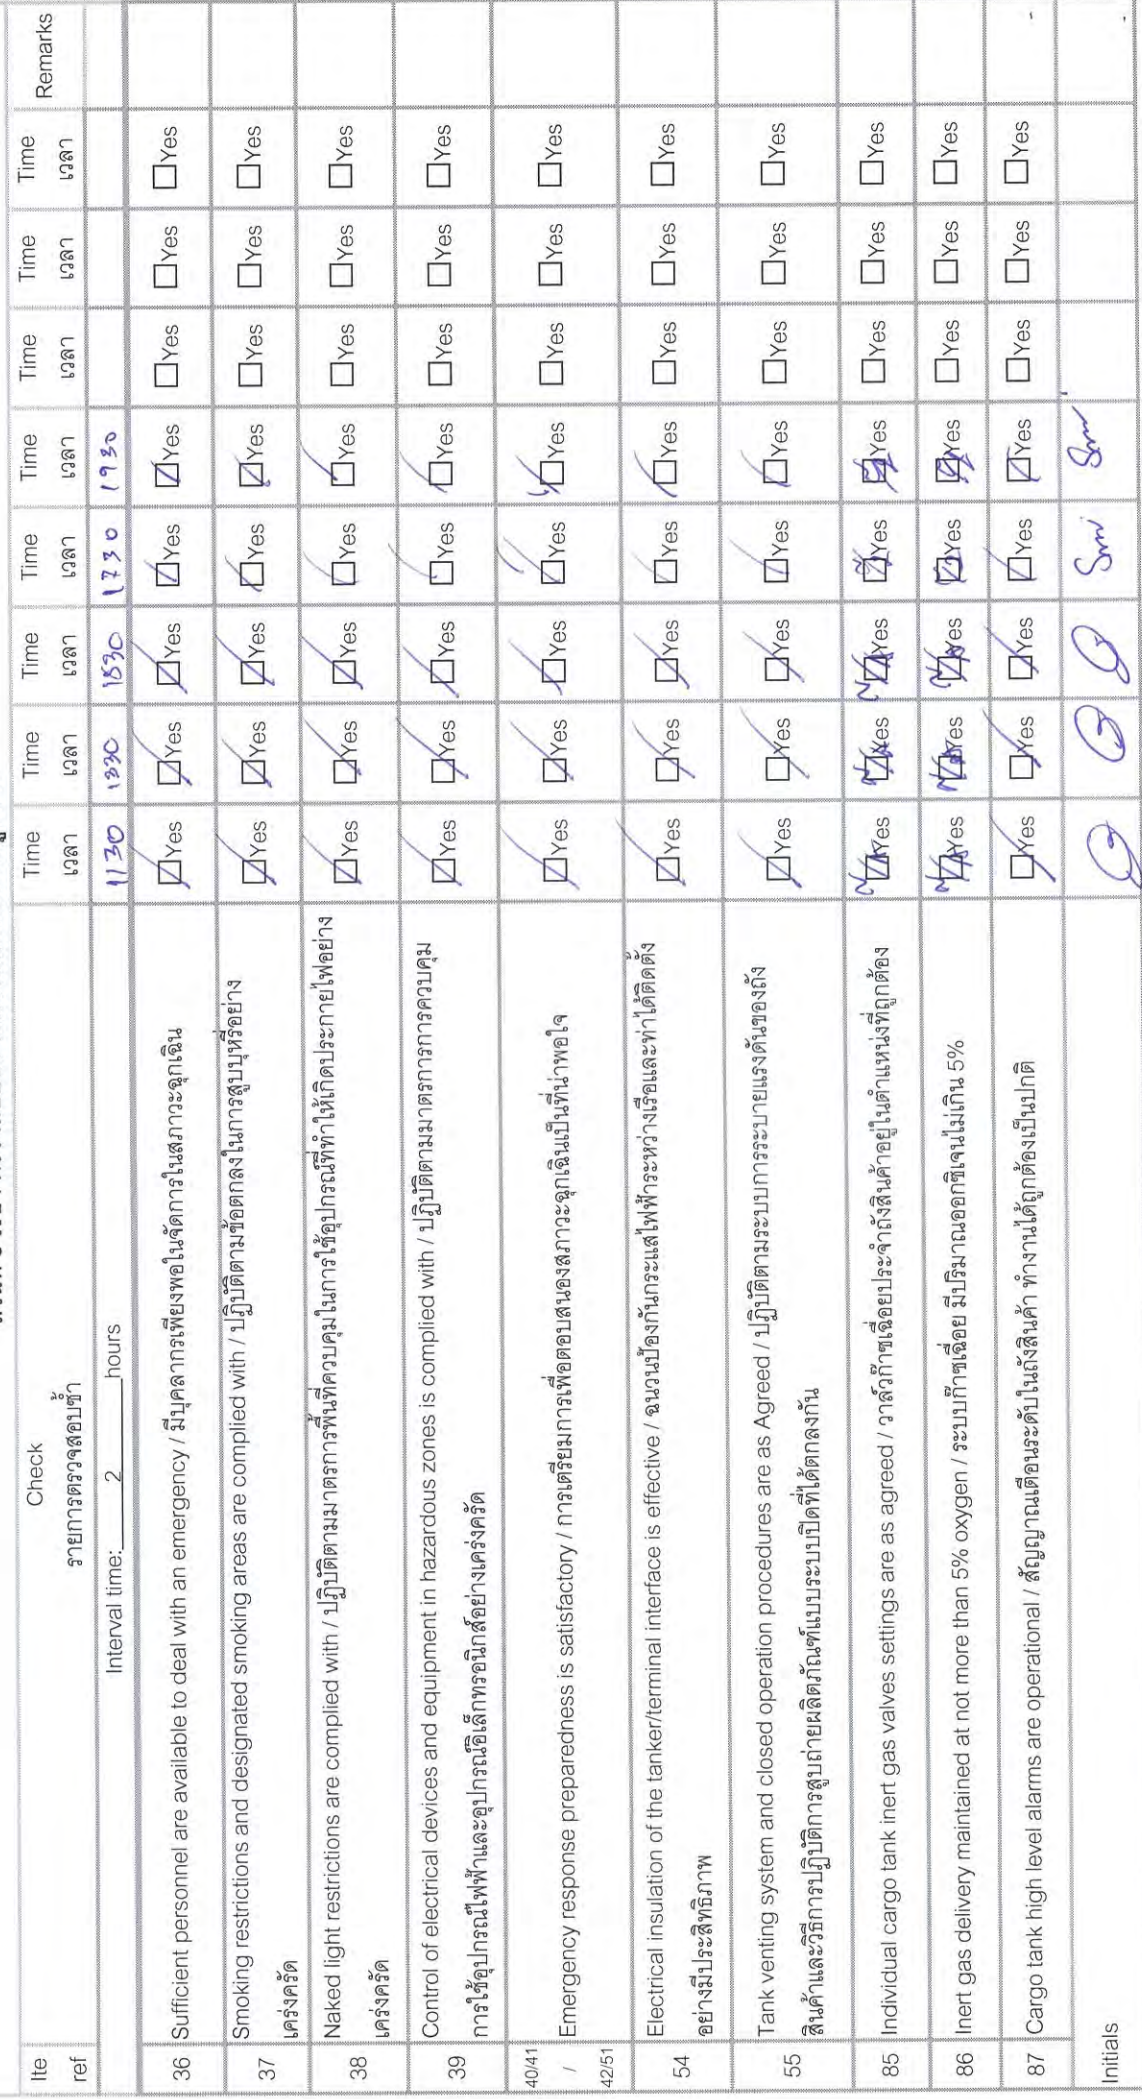 Ite ref Check รายการตรวจสอบซ้ำ Time เวลา Time เวลา Time เวลา Time เวลา Time เวลา Time เวลา Time เวลา Time เวลา Remarks
Interval time: 2 hours 1130 1330 1530 1730 1930
36 Sufficient personnel are available to deal with an emergency / มีบุคลากรเพียงพอในจัดการในสภาวะฉุกเฉิน ☑Yes ☑Yes ☑Yes ☑Yes ☑Yes ☐Yes ☐Yes ☐Yes
37 Smoking restrictions and designated smoking areas are complied with / ปฏิบัติตามข้อตกลงในการสูบบุหรี่อย่าง
เคร่งครัด ☑Yes ☑Yes ☑Yes ☑Yes ☑Yes ☐Yes ☐Yes ☐Yes
38 Naked light restrictions are complied with / ปฏิบัติตามมาตรการพื้นที่ควบคุมในการใช้อุปกรณ์ที่ทำให้เกิดประกายไฟอย่าง
เคร่งครัด ☑Yes ☑Yes ☑Yes ☑Yes ☑Yes ☐Yes ☐Yes ☐Yes
39 Control of electrical devices and equipment in hazardous zones is complied with / ปฏิบัติตามมาตรการการควบคุม
การใช้อุปกรณ์ไฟฟ้าและอุปกรณ์อิเล็กทรอนิกส์อย่างเคร่งครัด ☑Yes ☑Yes ☑Yes ☑Yes ☑Yes ☐Yes ☐Yes ☐Yes
40/41 / 42/51 Emergency response preparedness is satisfactory / การเตรียมการเพื่อตอบสนองสภาวะฉุกเฉินเป็นที่น่าพอใจ ☑Yes ☑Yes ☑Yes ☑Yes ☑Yes ☐Yes ☐Yes ☐Yes
54 Electrical insulation of the tanker/terminal interface is effective / ฉนวนป้องกันกระแสไฟฟ้าระหว่างเรือและท่าได้ติดตั้ง
อย่างมีประสิทธิภาพ ☑Yes ☑Yes ☑Yes ☑Yes ☑Yes ☐Yes ☐Yes ☐Yes
55 Tank venting system and closed operation procedures are as Agreed / ปฏิบัติตามระบบการระบายแรงดันของถัง
สินค้าและวิธีการปฏิบัติการสูบถ่ายผลิตภัณฑ์แบบระบบปิดที่ได้ตกลงกัน ☑Yes ☑Yes ☑Yes ☑Yes ☑Yes ☐Yes ☐Yes ☐Yes
85 Individual cargo tank inert gas valves settings are as agreed / วาล์วก๊าซเฉื่อยประจำถังสินค้าอยู่ในตำแหน่งที่ถูกต้อง Yes Yes Yes Yes Yes ☐Yes ☐Yes ☐Yes
86 Inert gas delivery maintained at not more than 5% oxygen / ระบบก๊าซเฉื่อย มีปริมาณออกซิเจนไม่เกิน 5% Yes Yes Yes Yes Yes ☐Yes ☐Yes ☐Yes
87 Cargo tank high level alarms are operational / สัญญาณเตือนระดับในถังสินค้า ทำงานได้ถูกต้องเป็นปกติ ☑Yes ☑Yes ☑Yes ☑Yes ☑Yes ☐Yes ☐Yes ☐Yes
Initials